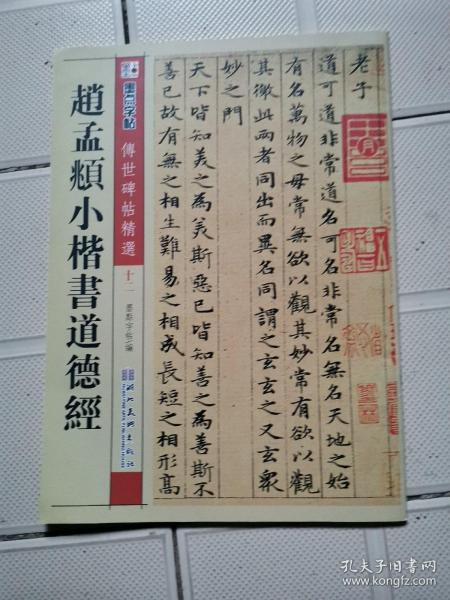 趙孟頫小楷書道德經
墨点字帖
傳世碑帖精選
十二
墨點字帖/編
湖北美術出版社
老子
道可道非常道名可名非常名無名天地之始
有名萬物之母常無欲以觀其妙常有欲以觀
其徼此兩者同出而異名同謂之玄玄之又玄衆
妙之門
天下皆知美之為美斯惡已皆知善之為善斯不
善已故有無之相生難易之相成長短之相形高
孔夫子旧书网
www.kongfz.com